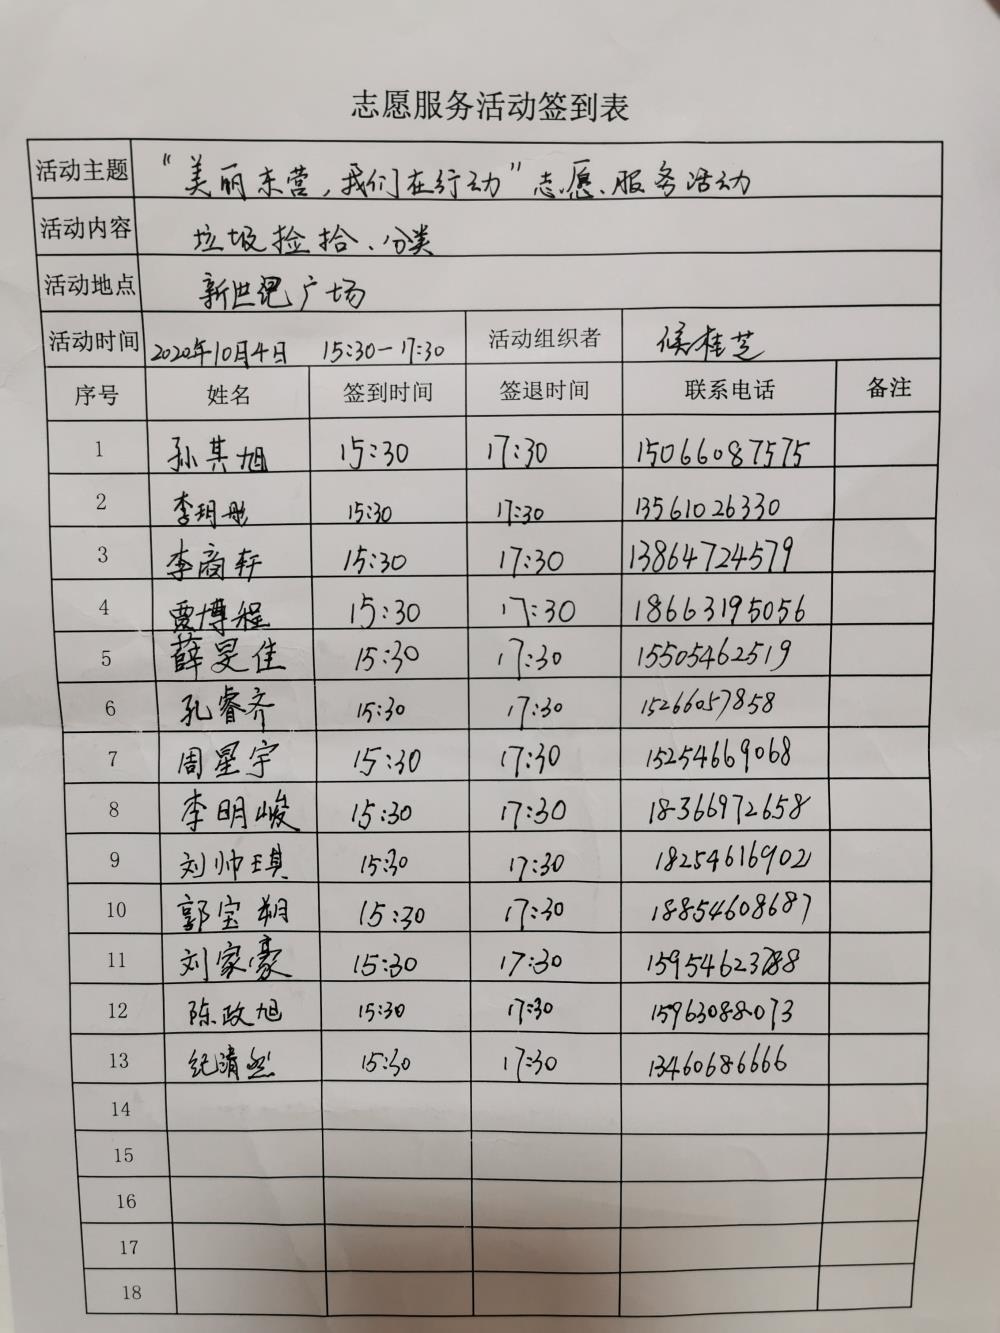 志愿服务活动签到表
活动主题 “美丽东营，我们在行动”志愿服务活动
活动内容 垃圾捡拾、分类
活动地点 新世纪广场
活动时间 2020年10月4日 15:30-17:30 活动组织者 侯桂芝
序号 姓名 签到时间 签退时间 联系电话 备注
1 孙其旭 15:30 17:30 15066087575
2 李玥彤 15:30 17:30 13561026330
3 李商轩 15:30 17:30 13864724579
4 贾博程 15:30 17:30 18663195056
5 薛旻佳 15:30 17:30 15505462519
6 孔睿齐 15:30 17:30 15266057858
7 周星宇 15:30 17:30 15254669068
8 李明峻 15:30 17:30 18366972658
9 刘帅琪 15:30 17:30 18254616902
10 郭宝 15:30 17:30 18854608687
11 刘家豪 15:30 17:30 15954623788
12 陈政旭 15:30 17:30 15963088073
13 纪清然 15:30 17:30 13460686666
14
15
16
17
18